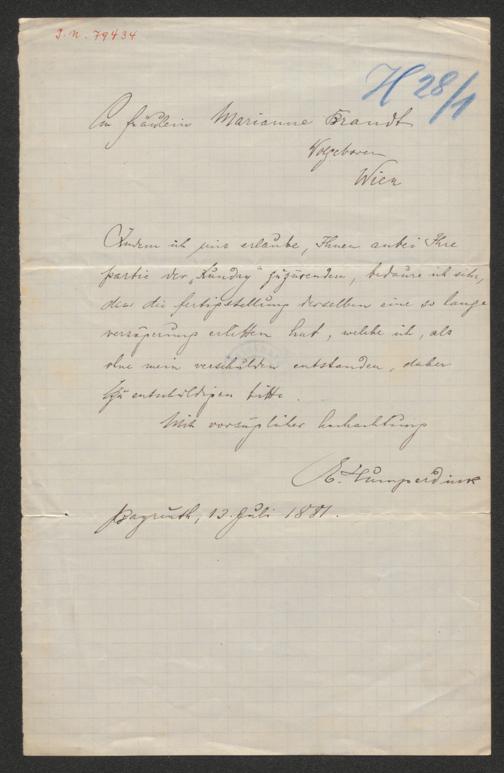 I.N. 79434
H 28/1
An Fräulein Marianne Brandt
Wolgeboren
Wien
Indem ich mir erlaube, Ihnen anbei Ihre
partie der „Kundry“ zuzusenden, bedaure ich sehr,
dass die fertigstellung derselben eine so lange
verzögerung erlitten hat, welche ich, als
ohne mein verschulden entstanden, daher
zu entschuldigen bitte.
Mit vorzüglicher hochachtung
E. Humperdinck
Bayreuth, 12. Juli 1881.